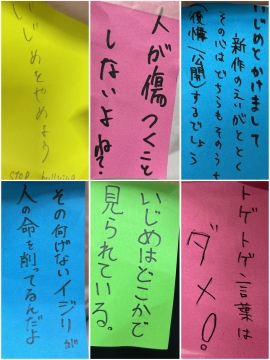 いじめをやめよう
STOP bullying
人が傷つくこと
しないよね?
いじめとかけまして
新作のえいがととく
その心はどちらもそのうち
(後悔/公開)するでしょう
その何げないイジリが
人の命を削ってるんだよ
いじめはどこかで
見られている。
トゲトゲ言葉は
ダメ!